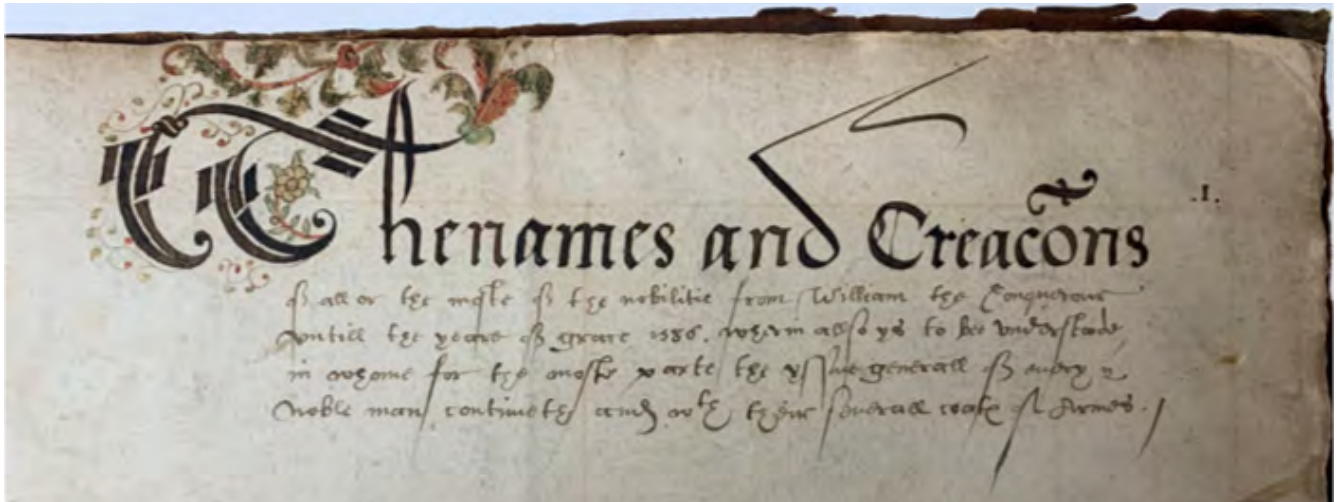 The names and Creacons
.1.
of all or the moste of the nobilitie from William the Conquerour
untill the yeare of grace 1586. wherin allso ys to bee understode,
in whome for the moste parte the yssue generall of every
Noble man, continueth and wth their severall coates of Armes.